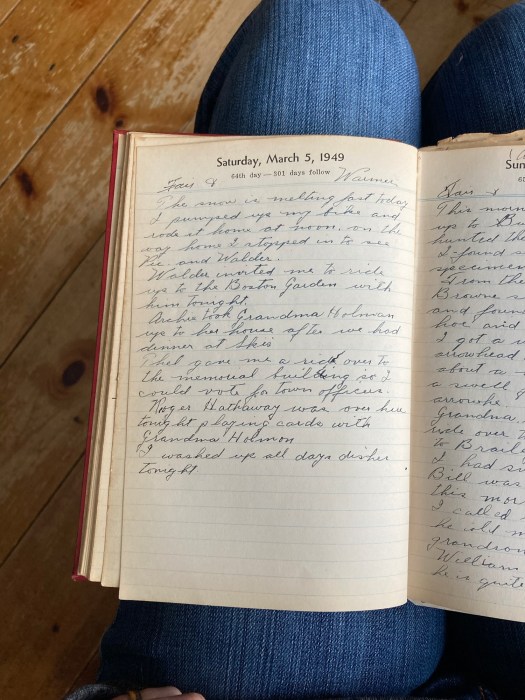 Saturday, March 5, 1949
64th day—301 days follow
Fair & Warmer
The snow is melting fast today
I pumped up my bike and
rode it home at noon. on the
way home I stopped in to see
Vic. and Walder.
Walder invited me to ride
up to the Boston Garden with
him tonight.
Archie took Grandma Holman
up to her house after we had
dinner at Skis
Phel gave me a ride over to
the memorial building so I
could vote for town officers.
Roger Hathaway was over here
tonight playing cards with
Grandma Holmon
I washed up all days dishes
tonight
Sun
Fair &
This morn
up to Bu
hunted th
I found s
specimen
From the
Browne s
and foun
hoe and
I got a
arrowhead
about a
a swell
arrowhe
Grandma
ride over t
to Brail
I had su
Bill was
this mor
I called
he old m
grandson
William
he is quite